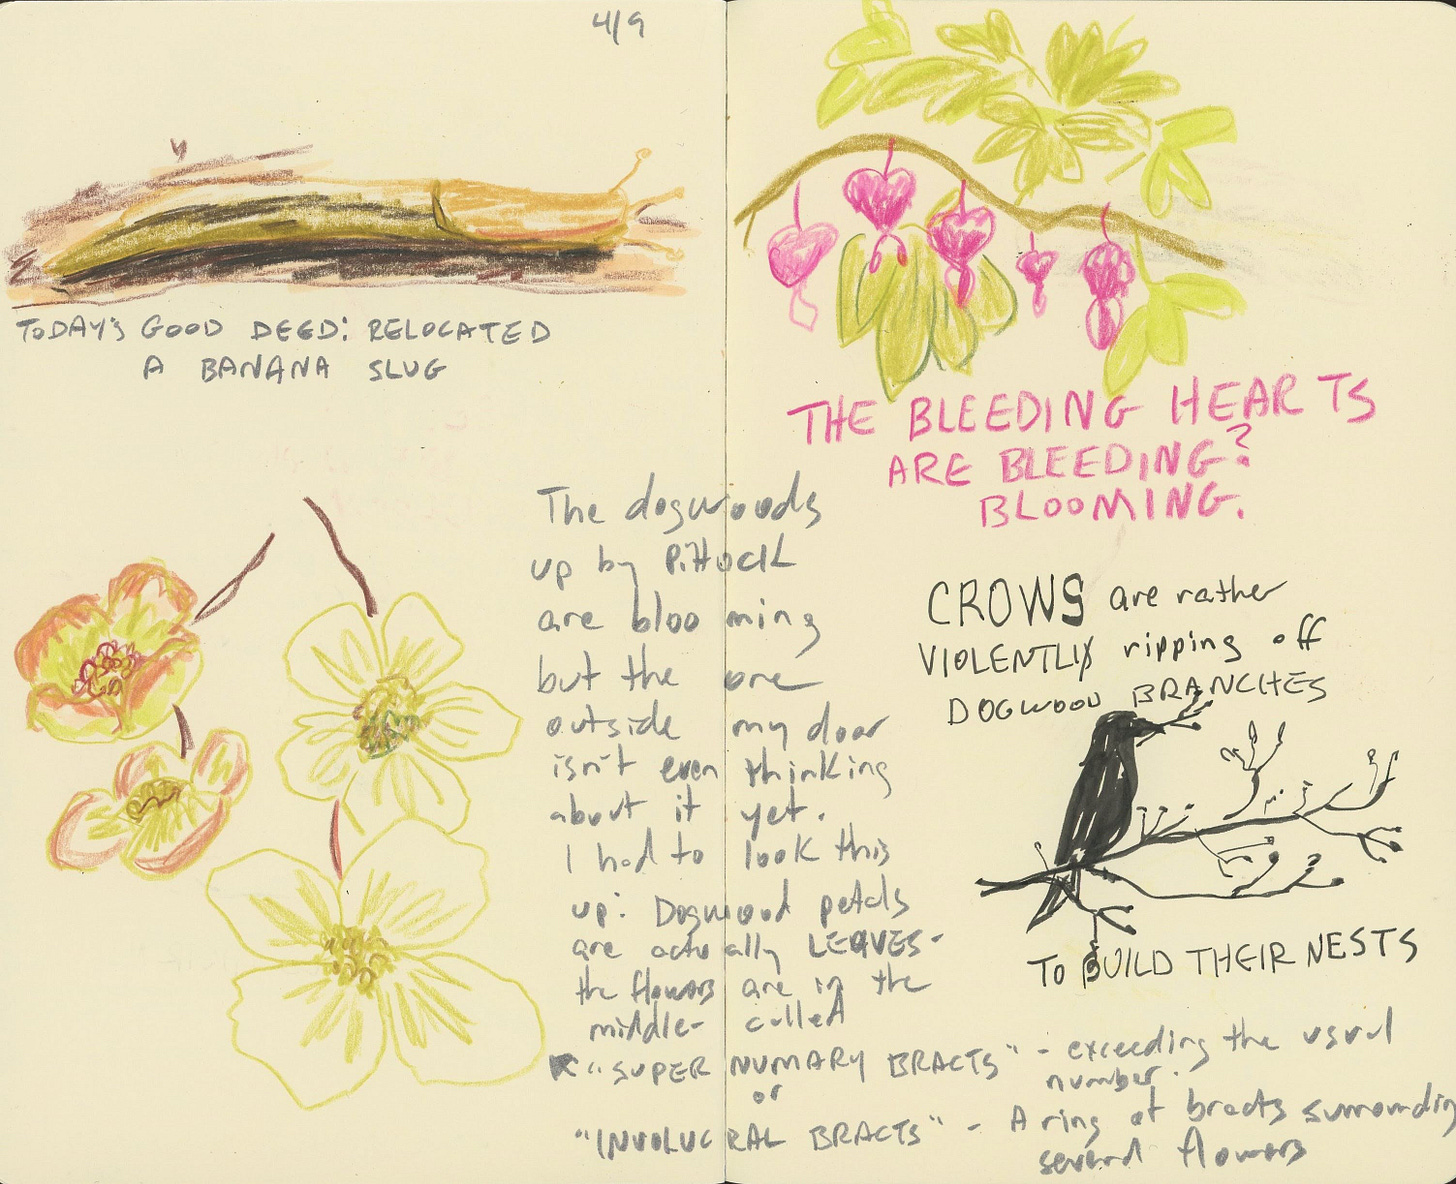 4/9
TODAY'S GOOD DEED: RELOCATED
A BANANA SLUG
THE BLEEDING HEARTS
ARE BLEEDING?
BLOOMING.
The dogwoods
up by Pittock
are blooming
but the one
outside my door
isn't even thinking
about it yet.
I had to look this
up: Dogwood petals
are actually LEAVES-
the flowers are in the
middle- called
"SUPER NUMARY BRACTS" - exceeding the usual
number.
or
"INVOLUCRAL BRACTS" - A ring of bracts surrounding
several flowers
CROWS are rather
VIOLENTLY ripping off
DOGWOOD BRANCHES
TO BUILD THEIR NESTS